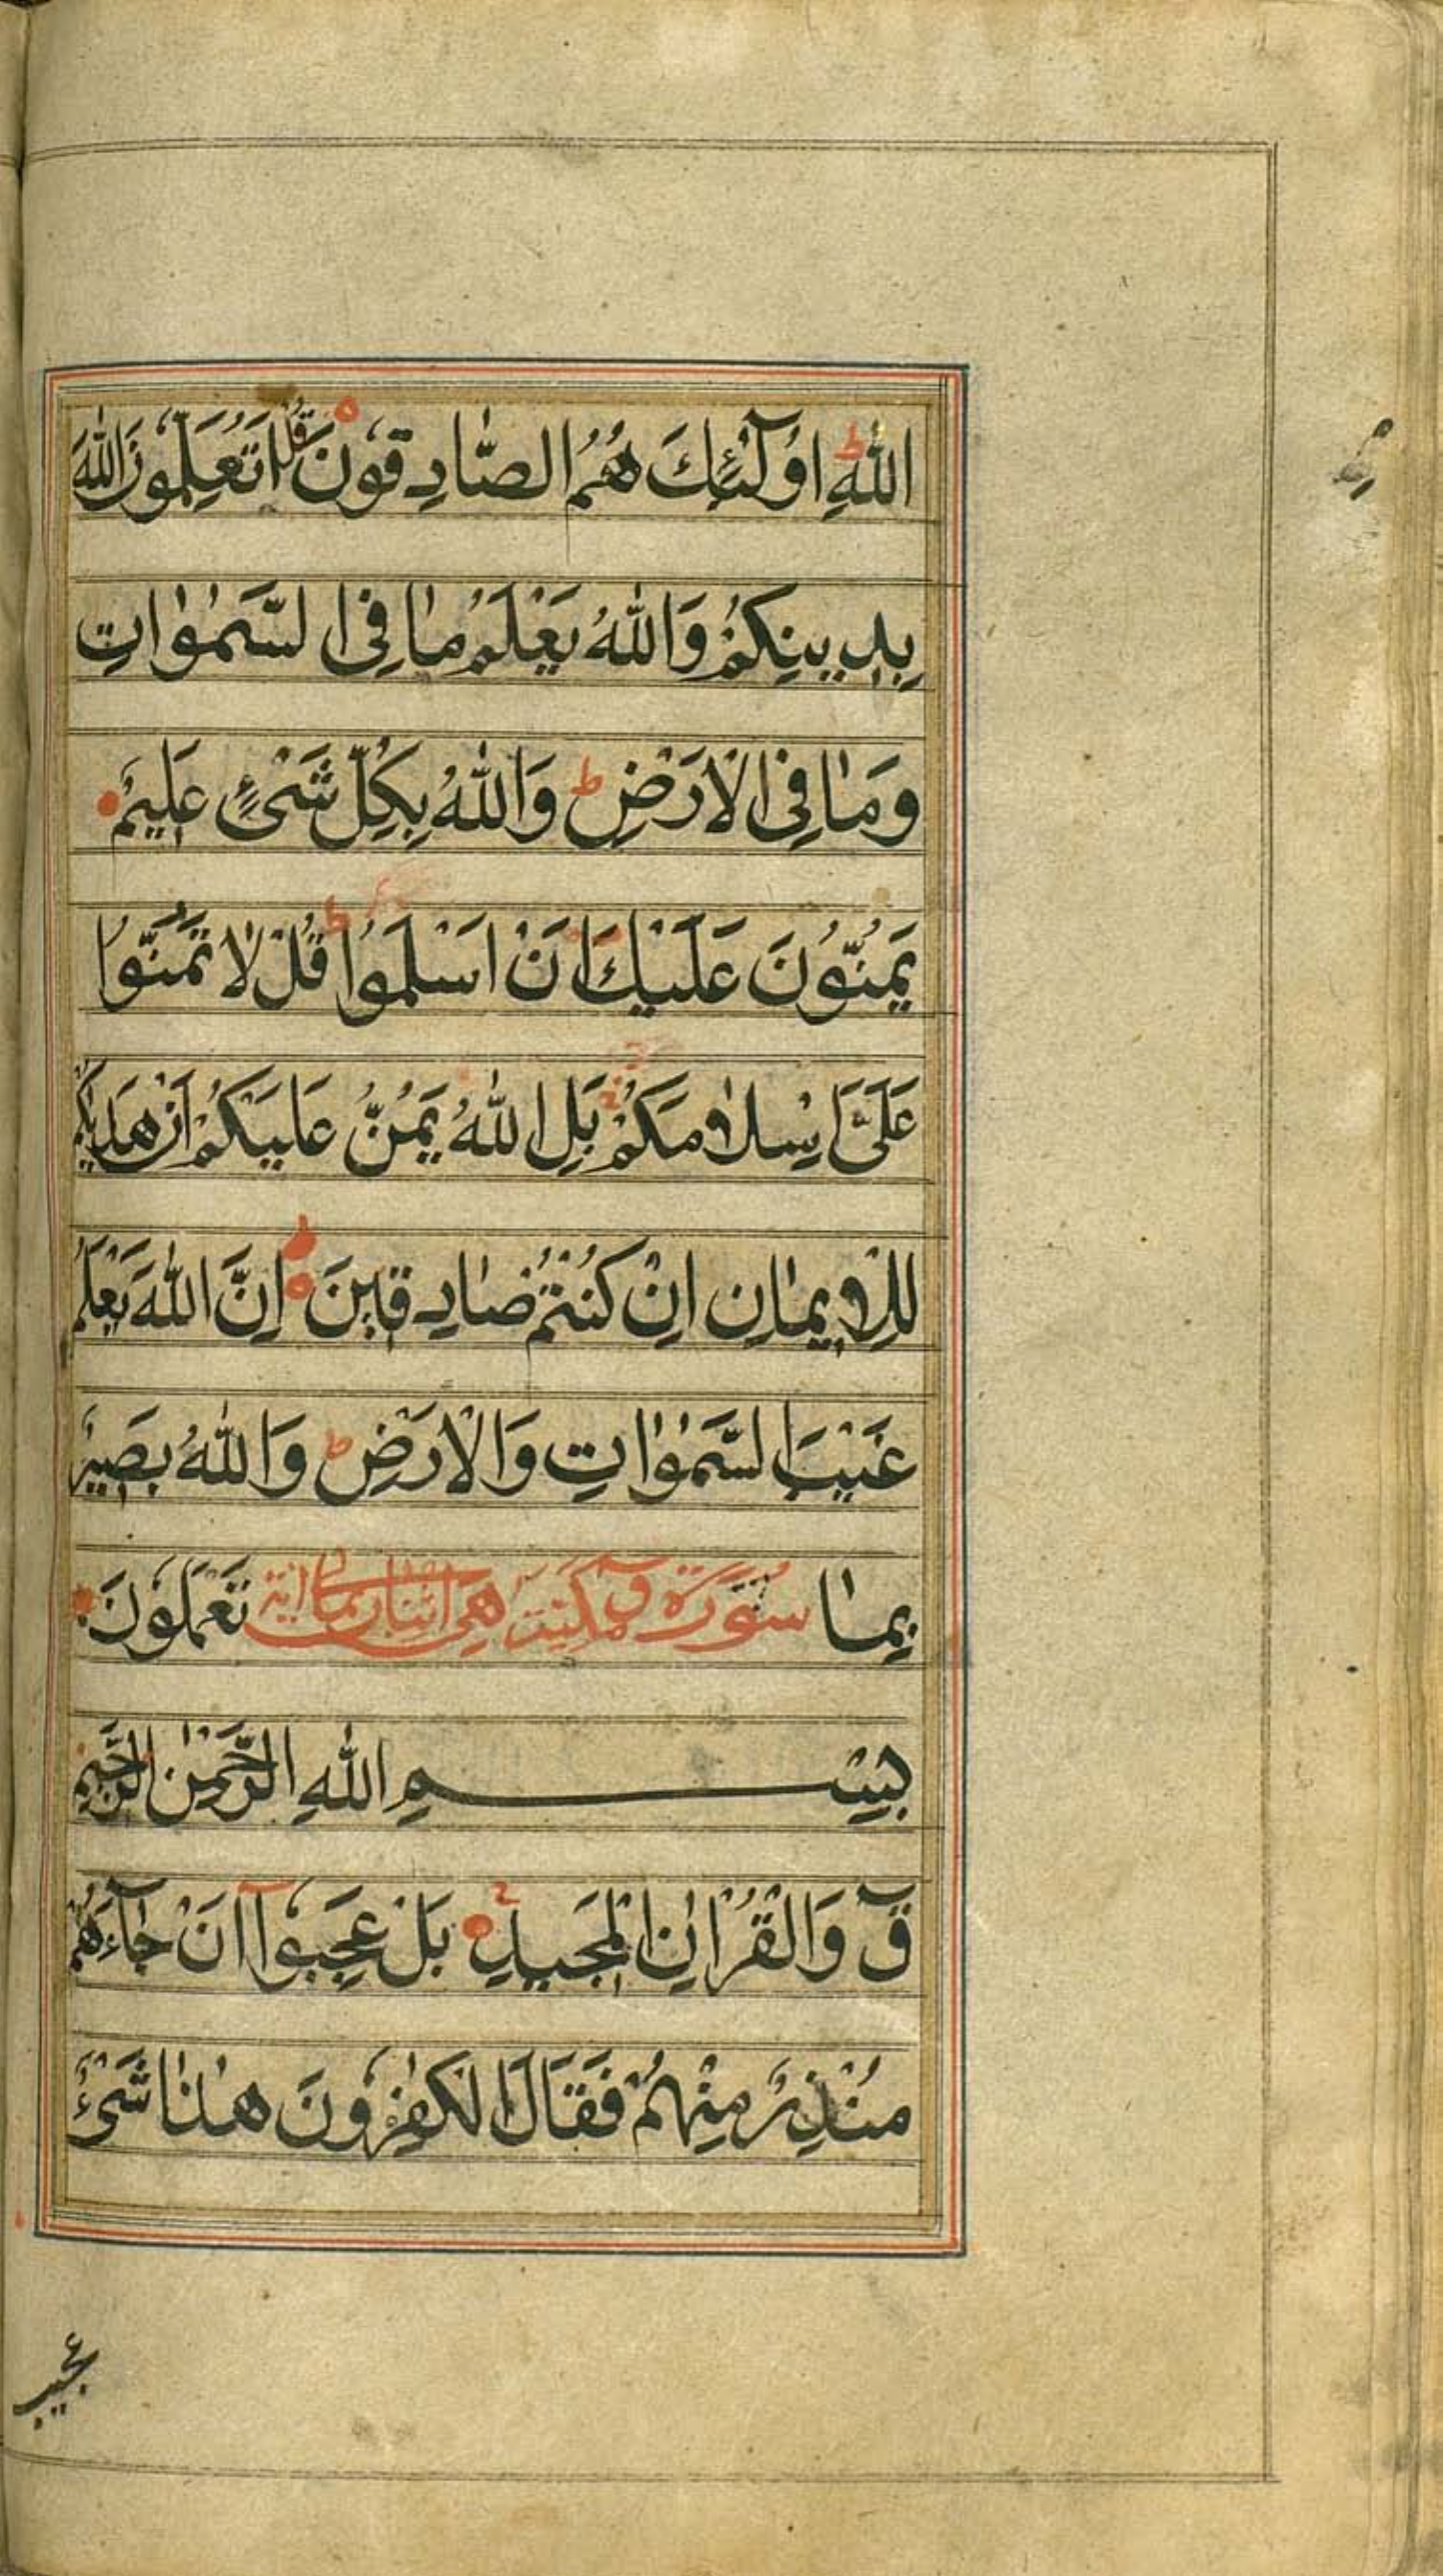 اللهِ ط اُولٰٓئِكَ هُمُ الصَّادِقُونَ قُلْ اَتُعَلِّمُونَ اللهَ
بِدِينِكُمْ وَاللهُ يَعْلَمُ مَا فِى السَّمٰوَاتِ
وَمَا فِى الْاَرْضِ ط وَاللهُ بِكُلِّ شَىْءٍ عَلِيمٌ
يَمُنُّونَ عَلَيْكَ اَنْ اَسْلَمُوا ط قُلْ لَا تَمُنُّوا
عَلَىَّ اِسْلَامَكُمْ بَلِ اللهُ يَمُنُّ عَلَيْكُمْ اَنْ هَدٰيكُمْ
لِلْاِيمَانِ اِنْ كُنْتُمْ صَادِقِينَ اِنَّ اللهَ يَعْلَمُ
غَيْبَ السَّمٰوَاتِ وَالْاَرْضِ ط وَاللهُ بَصِيرٌ
بِمَا سُورَة ق مكية هى اية تَعْمَلُونَ
بِسْمِ اللهِ الرَّحْمٰنِ الرَّحِيمِ
قٓ وَالْقُرْاٰنِ الْمَجِيدِ بَلْ عَجِبُوٓا اَنْ جَآءَهُمْ
مُنْذِرٌ مِنْهُمْ فَقَالَ الْكٰفِرُونَ هٰذَا شَىْءٌ
عجيب